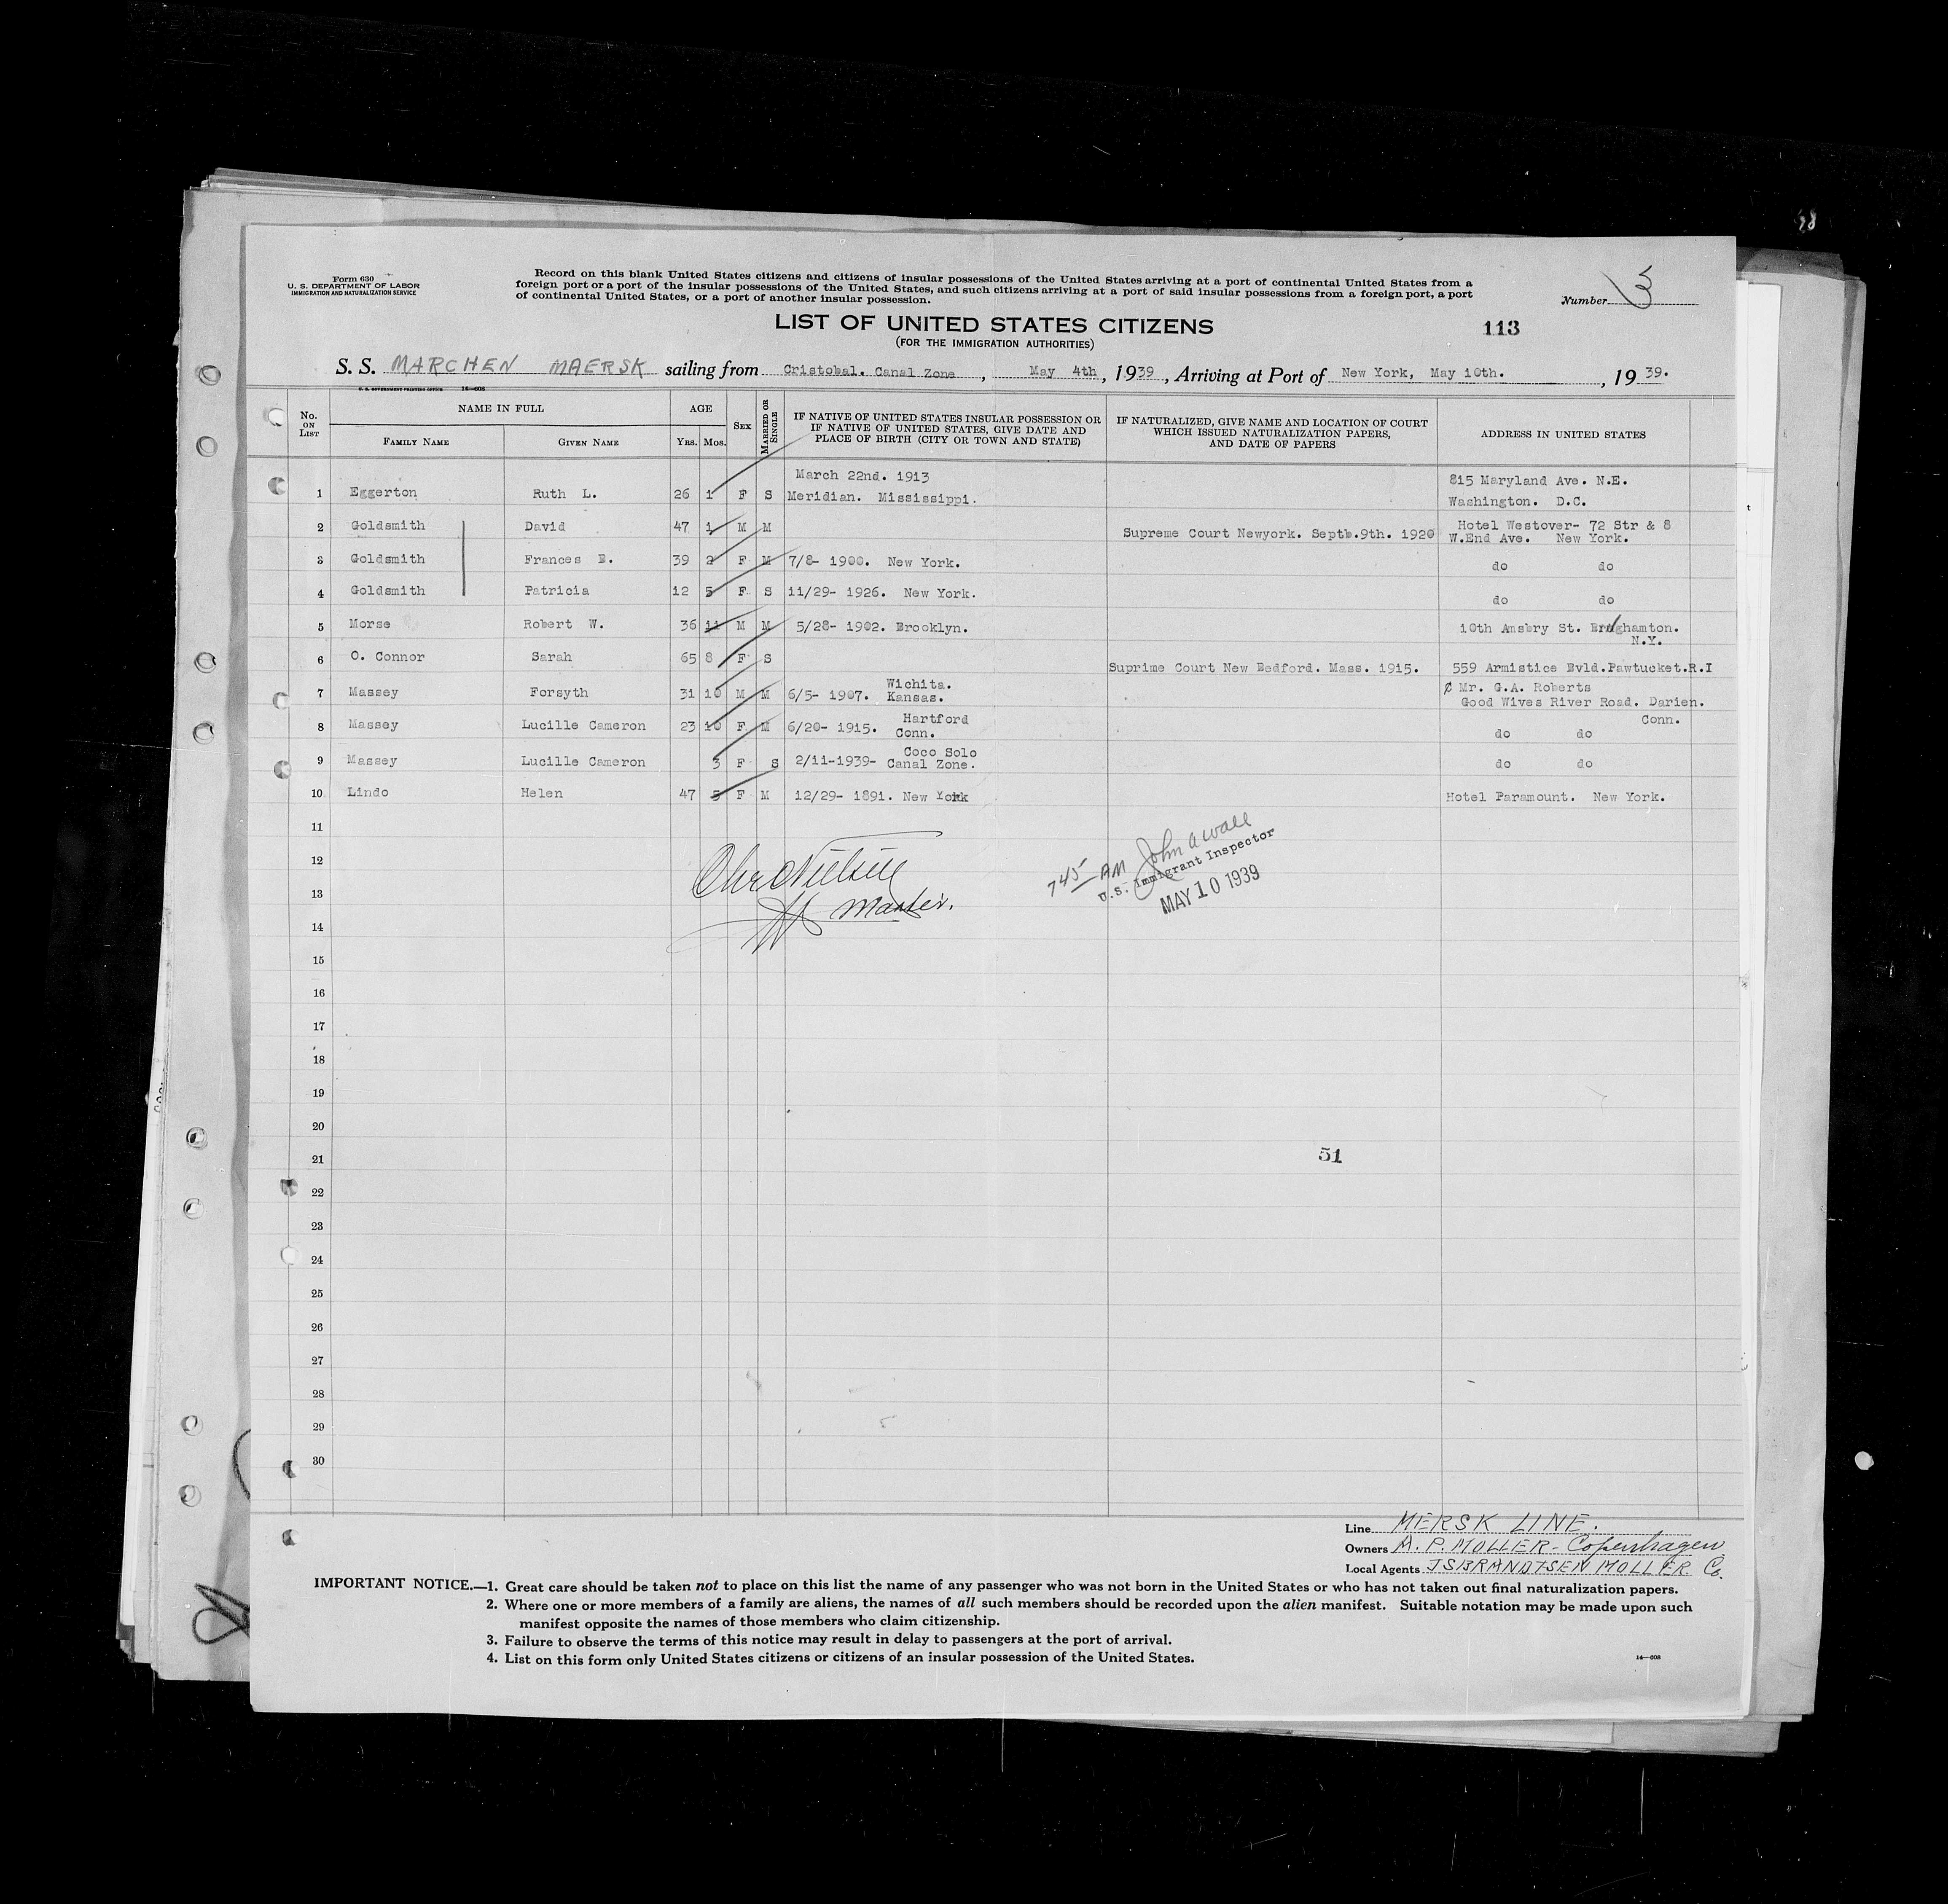 Form 630
U. S. DEPARTMENT OF LABOR
IMMIGRATION AND NATURALIZATION SERVICE
Record on this blank United States citizens and citizens of insular possessions of the United States arriving at a port of continental United States from a
foreign port or a port of the insular possessions of the United States, and such citizens arriving at a port of said insular possessions from a foreign port, a port
of continental United States, or a port of another insular possession.
Number 3
LIST OF UNITED STATES CITIZENS
113
(FOR THE IMMIGRATION AUTHORITIES)
S. S. MARCHEN MAERSK sailing from Cristobal. Canal Zone, May 4th, 1939, Arriving at Port of New York, May 10th., 1939.
U. S. GOVERNMENT PRINTING OFFICE 14—608
No. ON LIST NAME IN FULL AGE SEX MARRIED OR SINGLE IF NATIVE OF UNITED STATES INSULAR POSSESSION OR IF NATIVE OF UNITED STATES, GIVE DATE AND PLACE OF BIRTH (CITY OR TOWN AND STATE) IF NATURALIZED, GIVE NAME AND LOCATION OF COURT WHICH ISSUED NATURALIZATION PAPERS, AND DATE OF PAPERS ADDRESS IN UNITED STATES
FAMILY NAME GIVEN NAME YRS. MOS.
March 22nd. 1913 815 Maryland Ave. N.E.
1 Eggerton Ruth L. 26 1 F S Meridian. Mississippi. Washington. D.C.
2 Goldsmith David 47 1 M M Supreme Court Newyork. Septb.9th. 1920 Hotel Westover- 72 Str & 8
W.End Ave. New York.
3 Goldsmith Frances E. 39 2 F M 7/8- 1900. New York. do do
4 Goldsmith Patricia 12 5 F S 11/29- 1926. New York. do do
5 Morse Robert W. 36 11 M M 5/28- 1902. Brooklyn. 10th Amsbry St. ghamton.
N.Y.
6 O. Connor Sarah 65 8 F S Suprime Court New Bedford. Mass. 1915. 559 Armistice Bvld.Pawtucket.R.I
7 Massey Forsyth 31 10 M M 6/5- 1907. Wichita. Kansas. Mr. G.A. Roberts
Good Wives River Road. Darien.
Conn.
8 Massey Lucille Cameron 23 10 F M 6/20- 1915. Hartford Conn. do do
9 Massey Lucille Cameron 3 F S 2/11-1939- Coco Solo Canal Zone. do do
10 Lindo Helen 47 5 F M 12/29- 1891. New York Hotel Paramount. New York.
11
12
13
14
15
16
17
18
19
20
21
22
23
24
25
26
27
28
29
30
Master.
745 AM John A Wall
U.S. Immigrant Inspector
MAY 10 1939
51
Line MERSK LINE.
Owners A. P. MOLLER - Copenhagen
Local Agents ISBRANDTSEN MOLLER Co.
IMPORTANT NOTICE.—1. Great care should be taken not to place on this list the name of any passenger who was not born in the United States or who has not taken out final naturalization papers.
2. Where one or more members of a family are aliens, the names of all such members should be recorded upon the alien manifest. Suitable notation may be made upon such
manifest opposite the names of those members who claim citizenship.
3. Failure to observe the terms of this notice may result in delay to passengers at the port of arrival.
4. List on this form only United States citizens or citizens of an insular possession of the United States.
14—608